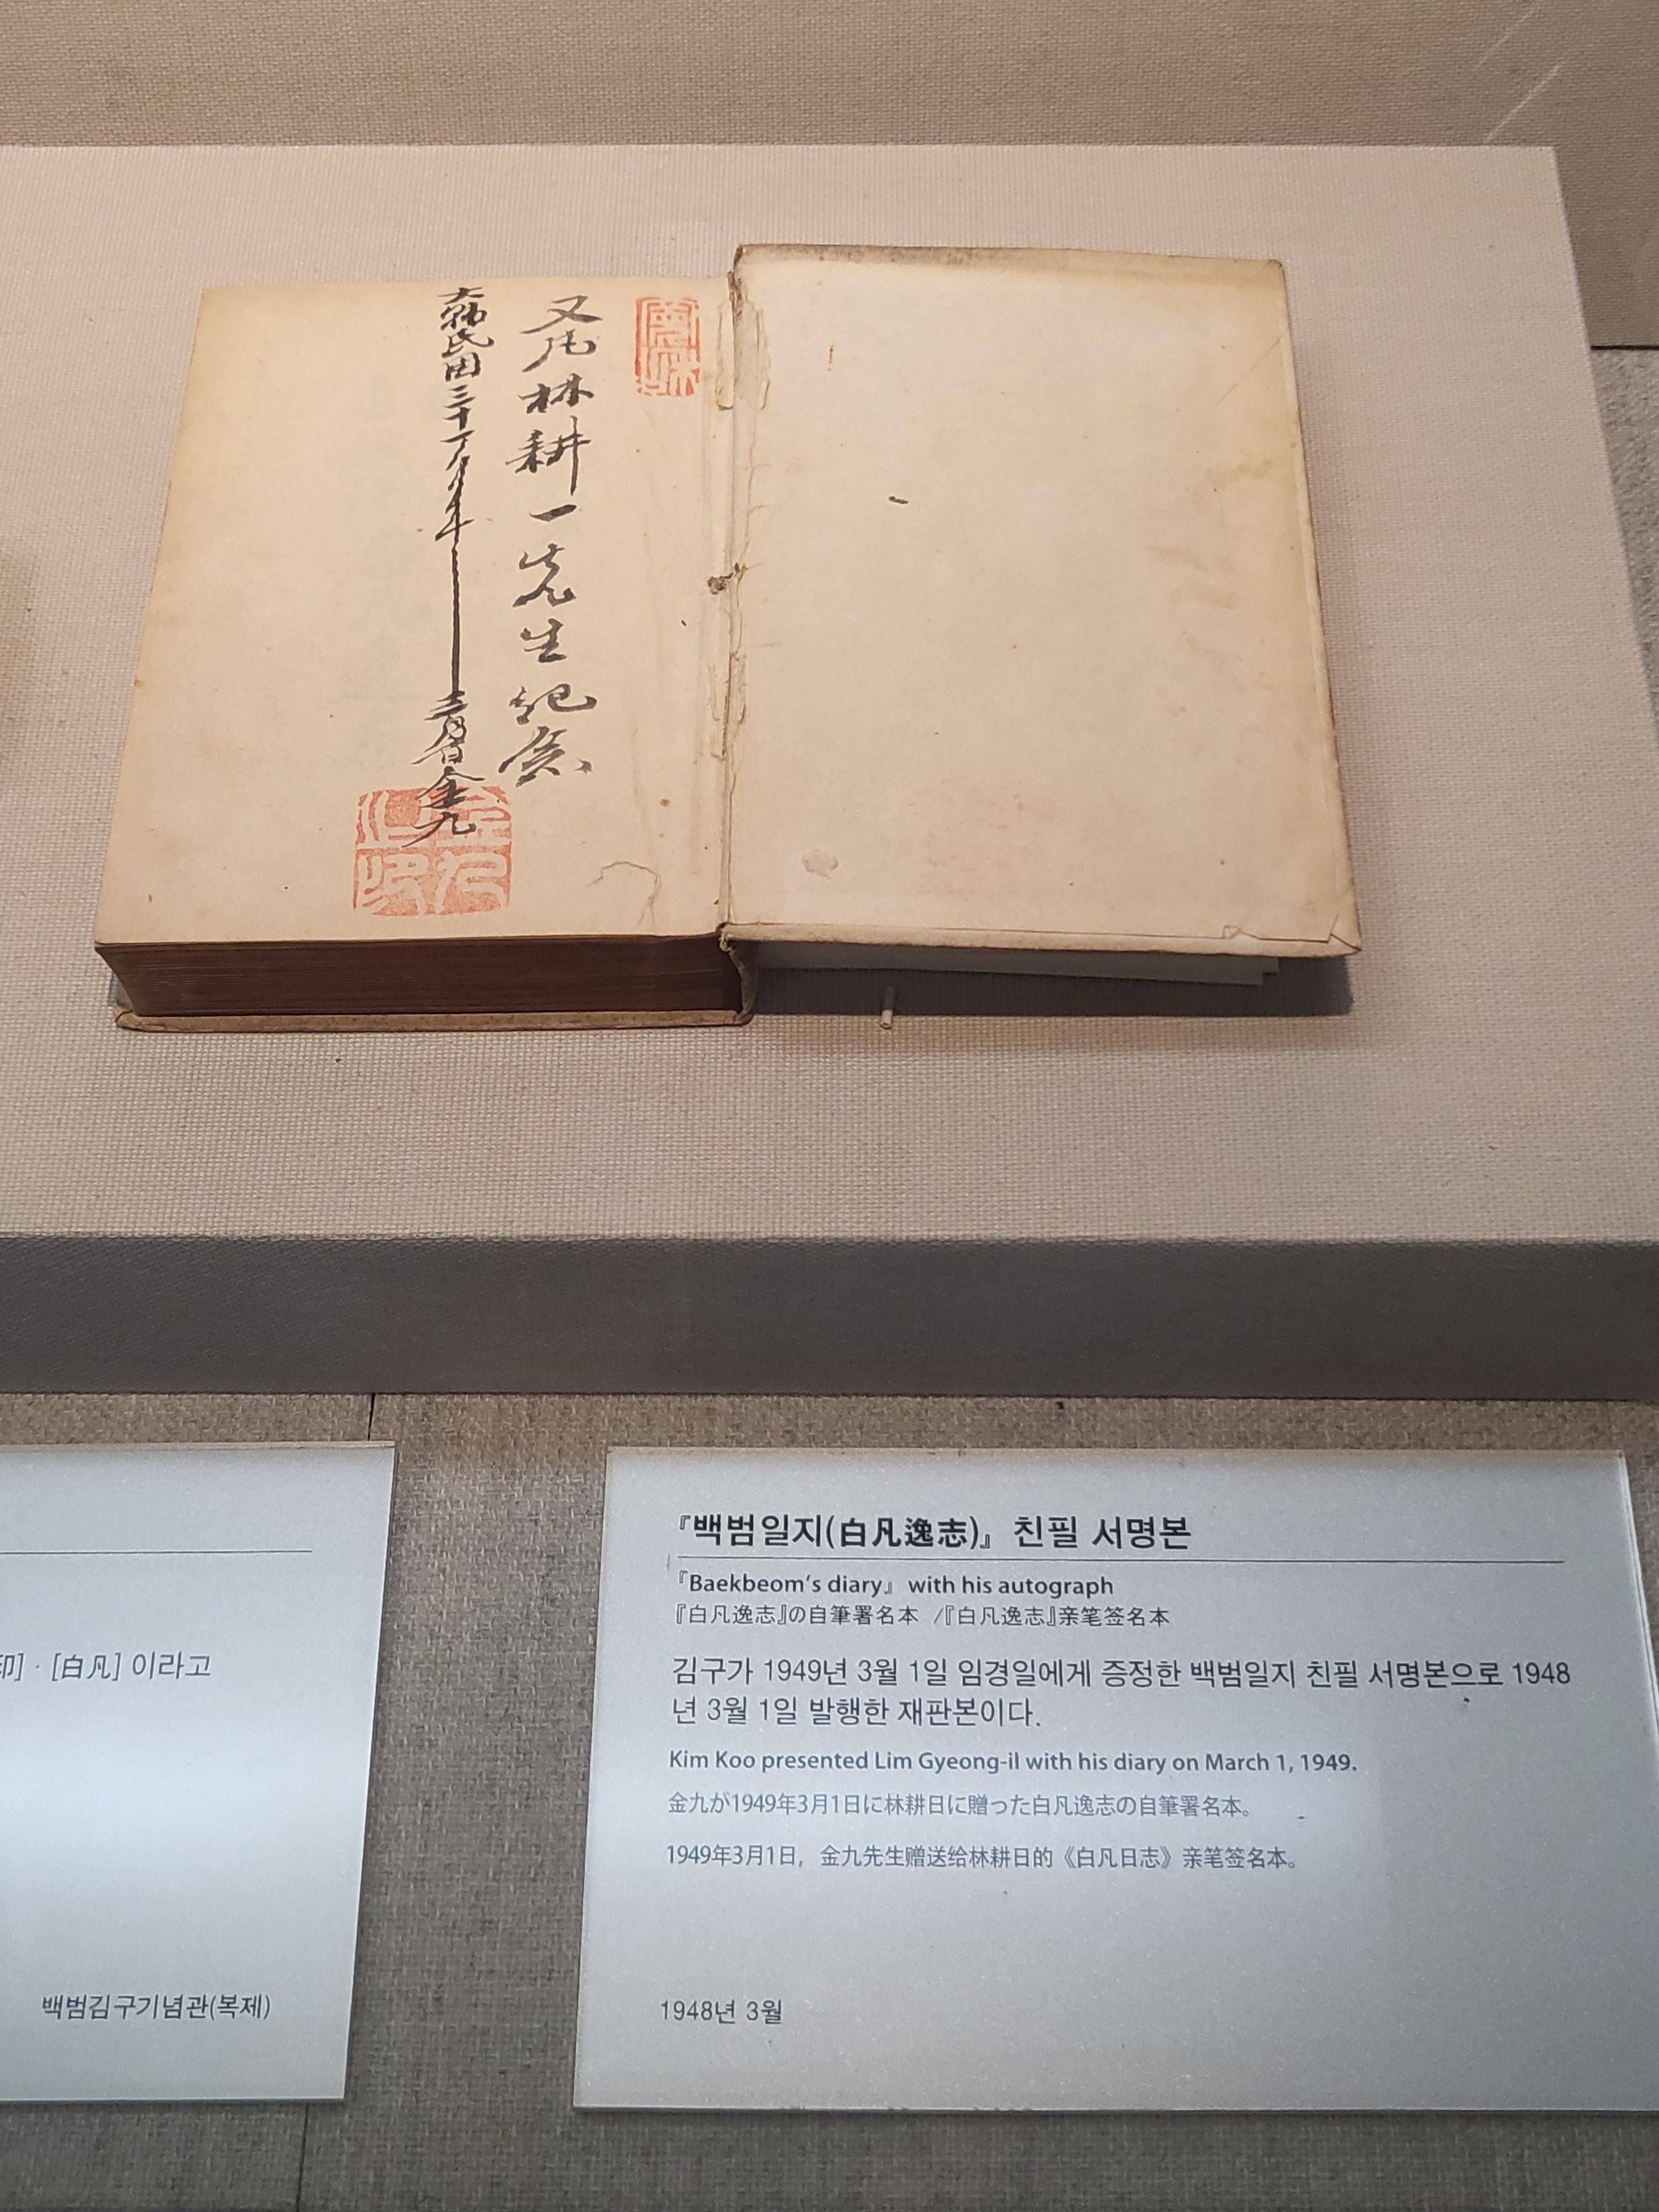 林耕一先生紀念
大韓民国三十一年 三月一日 金九
『백범일지(白凡逸志)』 친필 서명본
『Baekbeom's diary』 with his autograph
『白凡逸志』の自筆署名本 /『白凡逸志』亲笔签名本
김구가 1949년 3월 1일 임경일에게 증정한 백범일지 친필 서명본으로 1948
년 3월 1일 발행한 재판본이다.
Kim Koo presented Lim Gyeong-il with his diary on March 1, 1949.
金九が1949年3月1日に林耕日に贈った白凡逸志の自筆署名本。
1949年3月1日，金九先生赠送给林耕日的《白凡日志》亲笔签名本。
1948년 3월
印]·[白凡] 이라고
백범김구기념관(복제)